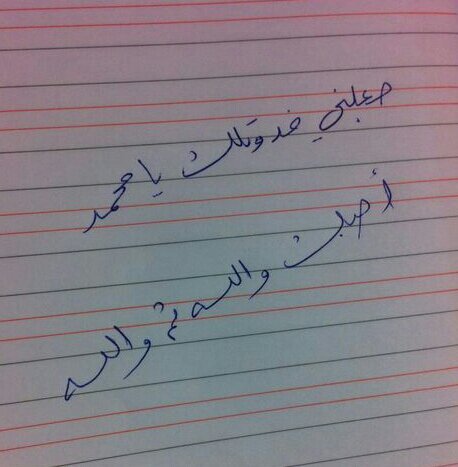 جعلني فدوتك يا محمد
أحبك والله ثم والله